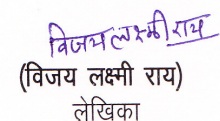 विजय लक्ष्मी राय
(विजय लक्ष्मी राय)
लेखिका